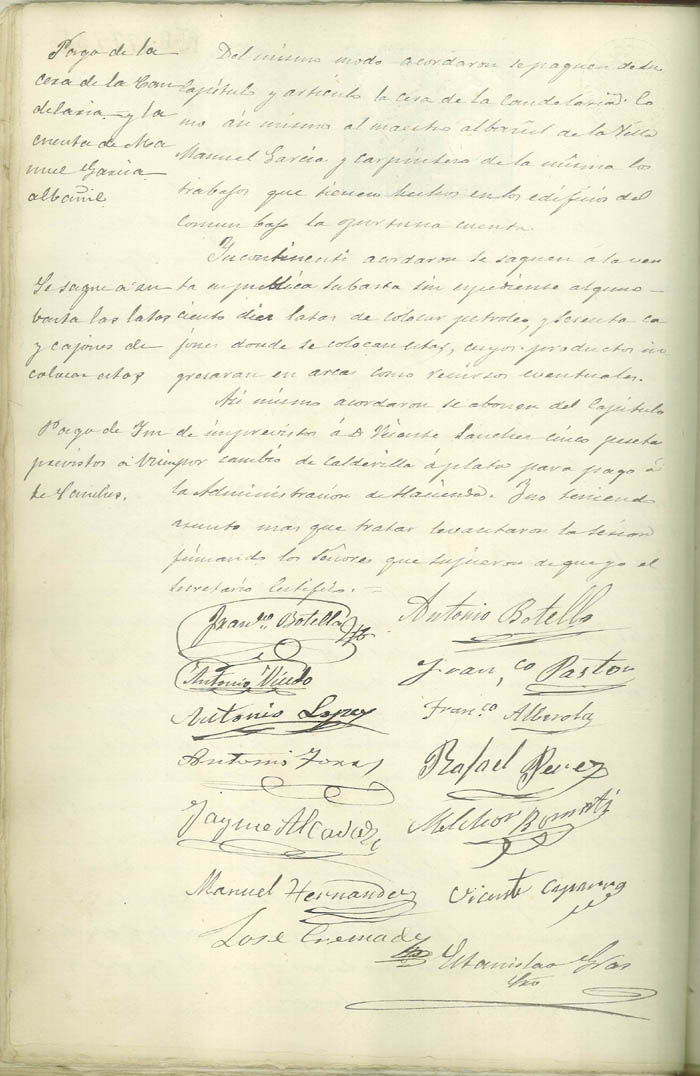 Pago de la
cera de la Can
delaria y la
cuenta de Ma
nuel Garcia
albañil
Del mismo modo acordaron se paguen de su
Capítulo y artículo la cera de la Candelaria. Co
mo así mismo al maestro albañil de la Villa
Manuel Garcia y carpintero de la misma los
trabajos que tienen hechos en los edificios del
comun bajo la oportuna cuenta.
Se saque a su
basta las latas
y cajones de
colocar estas
Incontinenti acordaron se saquen á la ven
ta en publica subasta sin espediente alguno
ciento diez latas de colocar petroleo, y sesenta ca
jones donde se colocan estas, cuyos productos in
gresaran en arcas como recursos eventuales.
Pago de Im
previstos a Vicen
te Sanchez.
Asi mismo acordaron se abonen del Capitulo
de imprevistos á D. Vicente Sanchez cinco peseta
por cambio de calderilla á plata para pago á
la Administracion de Hacienda. Y no teniendo
asunto mas que tratar levantaron la sesion
firmando los Señores que supieron de que yo el
Secretario Certifico.
Franco Botella
Antonio Botella
Antonio
Franco Pastor
Antonio Lopez
Franco Alberola
Antonio
Rafael Perez
Jayme Alcaraz
Melchor
Manuel Hernandez
Vicente
José Cremades
Estanislao Gras
Srio